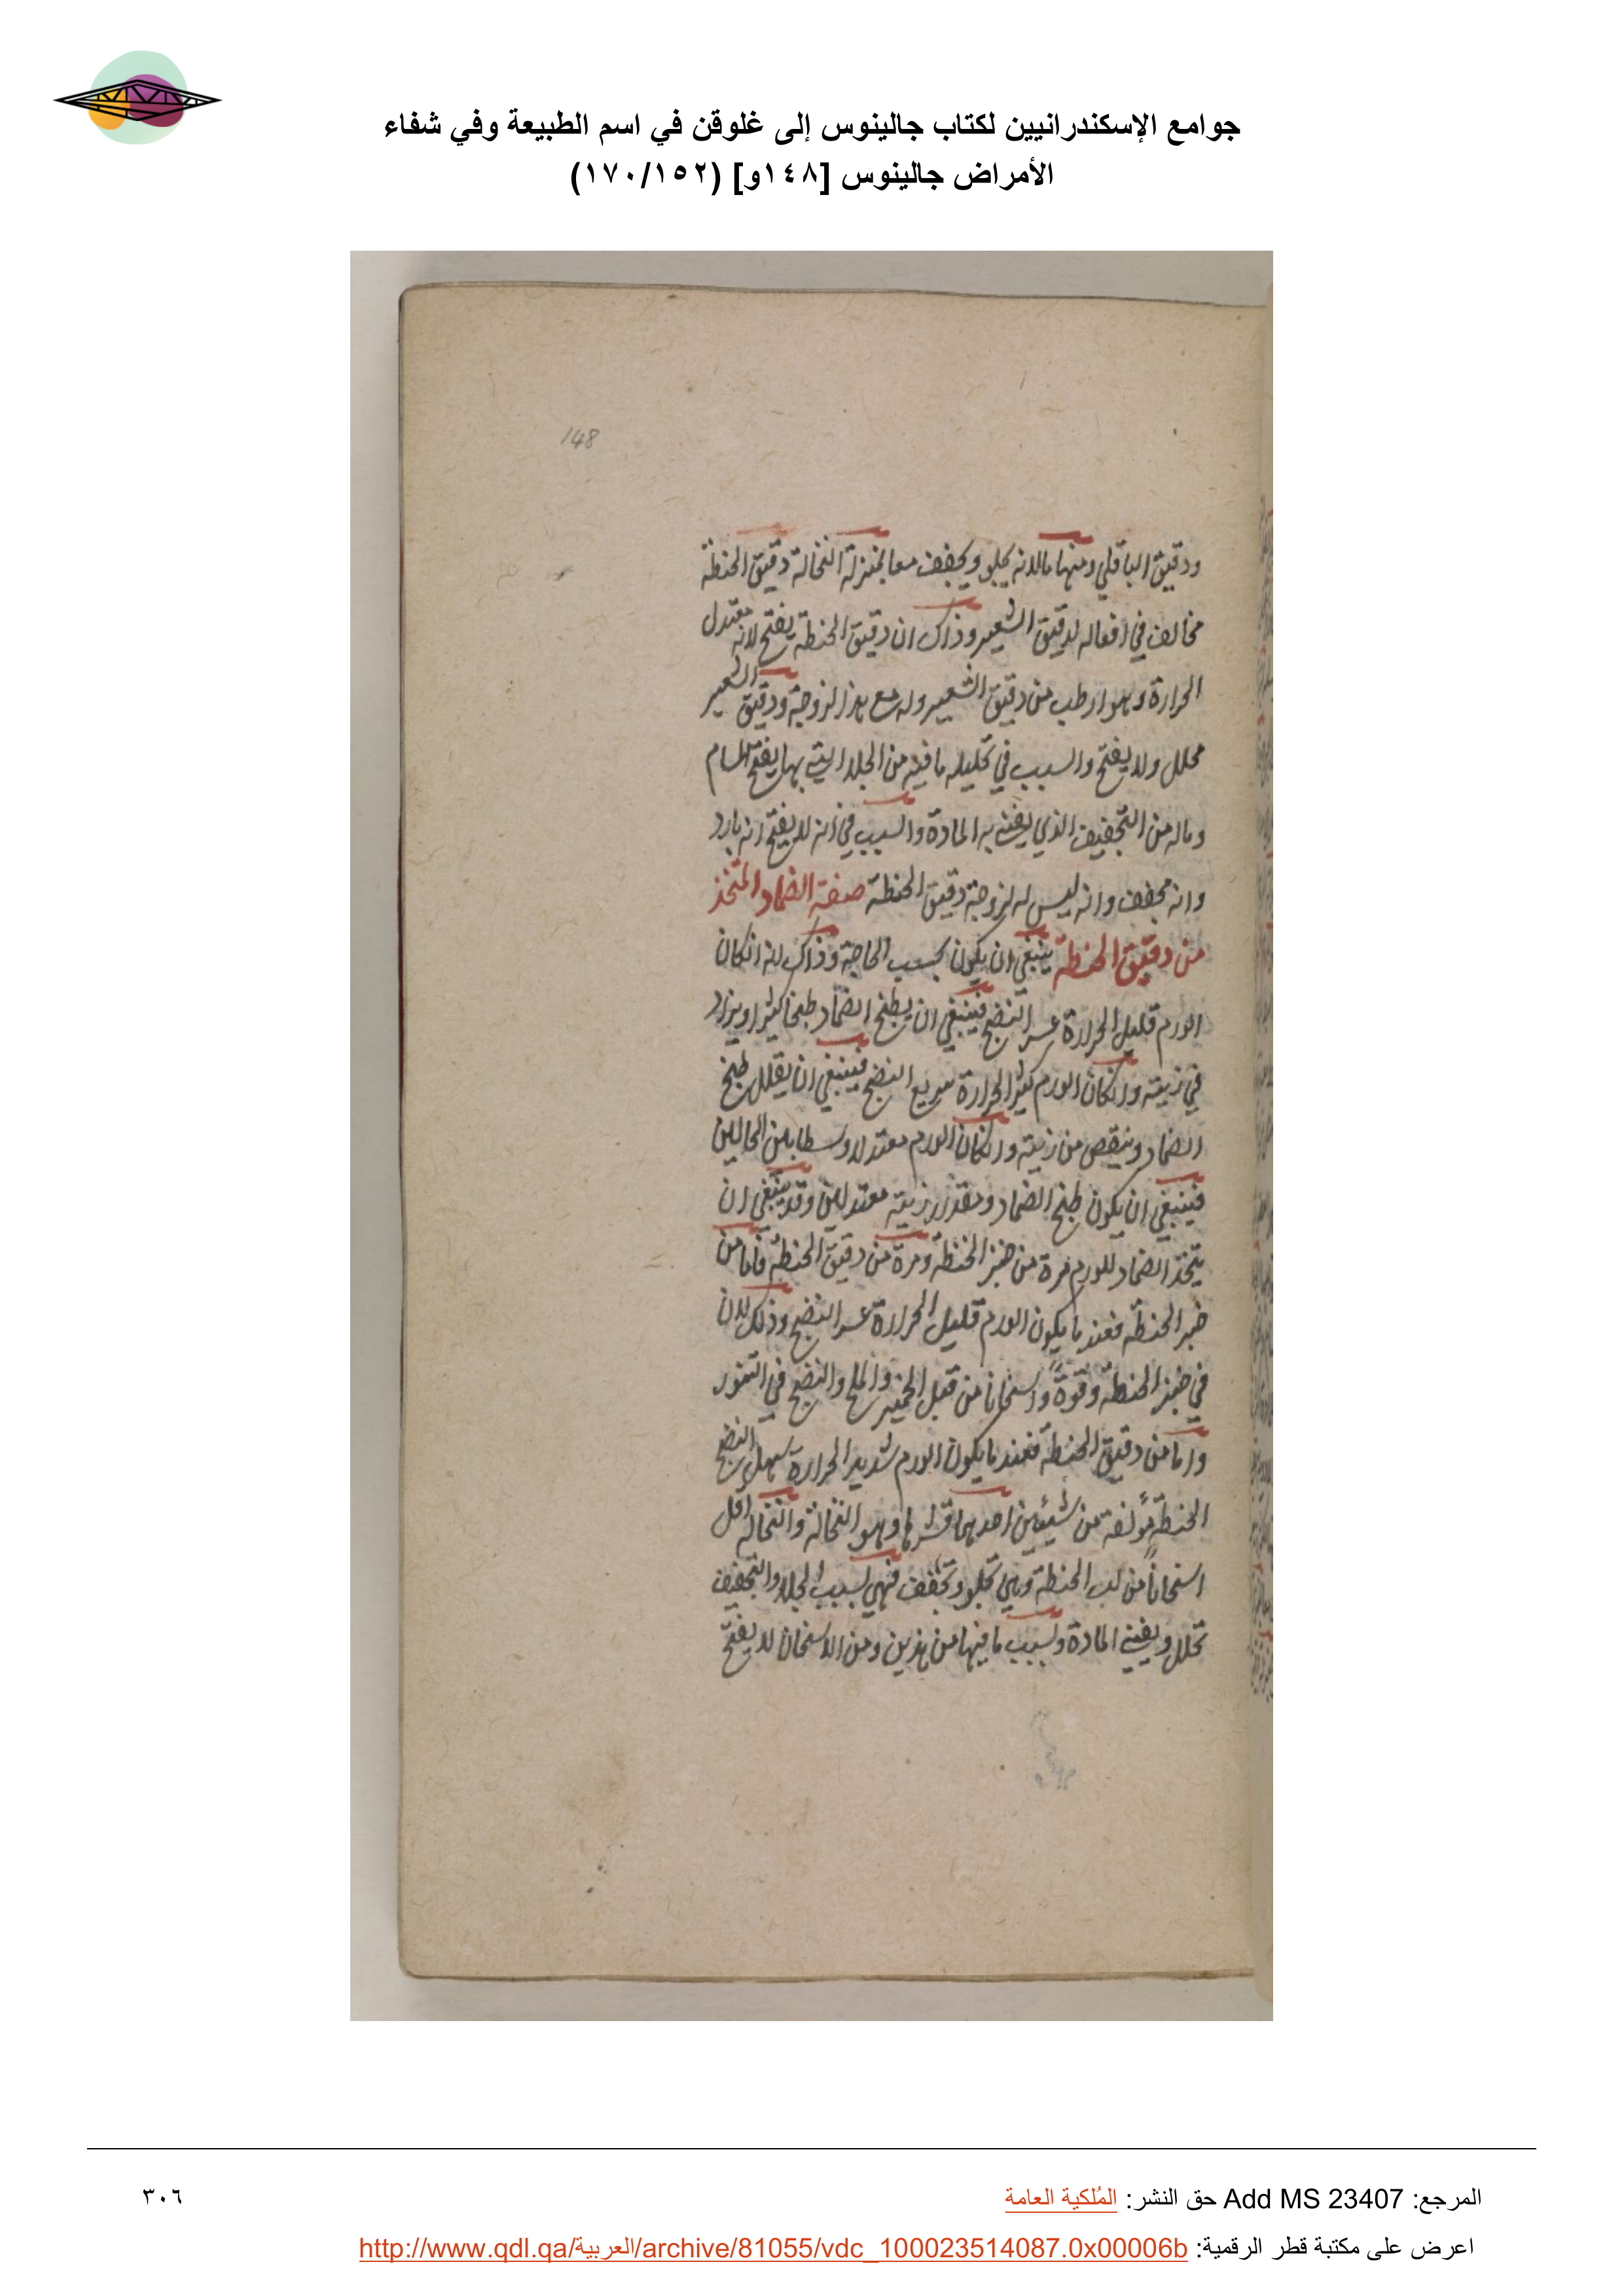 جوامع الإسكندرانيين لكتاب جالينوس إلى غلوقن في اسم الطبيعة وفي شفاء
الأمراض جالينوس [١٤٨و] (١٧٠/١٥٢)
148
ودقيق الباقلي ومنها ما لانه يجلو ويجفف معا بمنزلة النخالة دقيق الحنطة
مخالف في افعاله لدقيق الشعير وذاك ان دقيق الحنطة يفتح لانه معتدل
الحرارة وهو ارطب من دقيق الشعير وله مع هذا لزوجة ودقيق الشعير
محلل ولا يفتح والسبب في تحليله ما فيه من الجلا التي بها يفتح المسام
وماله من التجفيف الذي يفني به المادة والسبب في انه لا يفتح انه بارد
وانه مجفف وانه ليس له لزوجة دقيق الحنطة صفة الضماد المتخذ
من دقيق الحنطة ينبغي ان يكون بحسب الحاجة وذاك لانه انكان
الورم قليل الحرارة عسر النضج فينبغي ان يطبخ الضماد طبخا كثيرا ويزاد
في زيته وانكان الورم كثير الحرارة سريع النضج فينبغي ان يقلل طبخ
الضماد وينقص من زيته وانكان الورم معتدلا وسطا بين الحالين
فينبغي ان يكون طبخ الضماد ومقدر زيته معتدلين وقد ينبغي ان
يتخذ الضماد للورم مرة من خبز الحنطة ومرة من دقيق الحنطة فاما من
خبز الحنطة فعند ما يكون الورم قليل الحرارة عسر النضج وذلك لان
في خبز الحنطة وقوة واسخانا من قبل الخمير والملح والنضج في التنور
واما من دقيق الحنطة فعند ما يكون الورم شديد الحرارة سهل النضج
الحنطة مؤلفة من شيئين احدهما قشرها وهو النخالة والنخاله اقل
اسخانا من لب الحنطة وهي تجلو وتجفف فهي لسبب الجلا والتجفيف
تحلل ويفني المادة ولسبب ما فيها من هذين ومن الاسخان لا يفتح
المرجع: Add MS 23407 حق النشر: المُلكية العامة
٣٠٦
اعرض على مكتبة قطر الرقمية: http://www.qdl.qa/العربية/archive/81055/vdc_100023514087.0x00006b